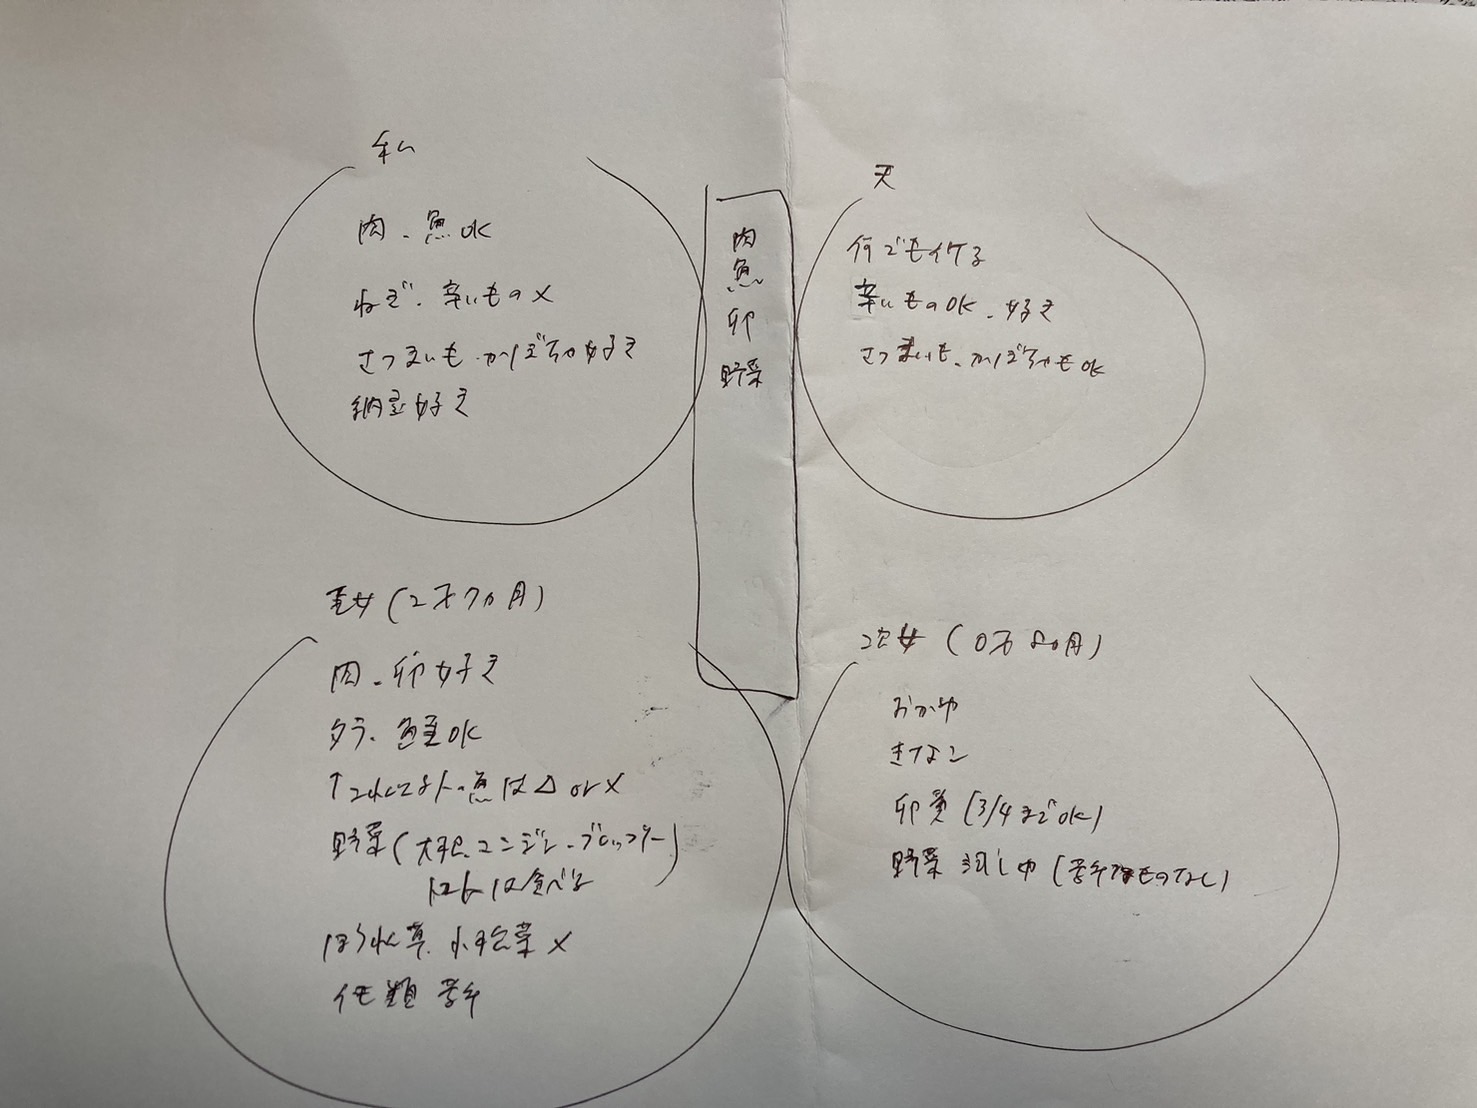 私
肉、魚OK
ねぎ、辛いもの×
さつまいも、かぼちゃ好き
納豆好き
肉
魚
卵
野菜
夫
何でもイケる
辛いものOK、好き
さつまいも、かぼちゃもOK
長女(2才7ヵ月)
肉、卵好き
タラ、鮭OK
↑これ以外の魚は△or×
野菜(大根、ニンジン、ブロッコリー)
は食べる
ほうれん草、小松菜×
イモ類 苦手
次女(0才8ヵ月)
おかゆ
きなこ
卵黄(3/4までOK)
野菜 (苦手なものなし)